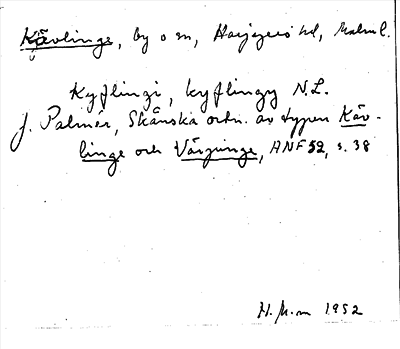 Kävlinge, by o sn, Harjagers hd, Malm l.
Kyflingi, kyflingy N.L.
J. Palmér, Skånska ortn. av typen Käv-
linge och Värpinge, ANF 52, s. 38
H. M-m 1952